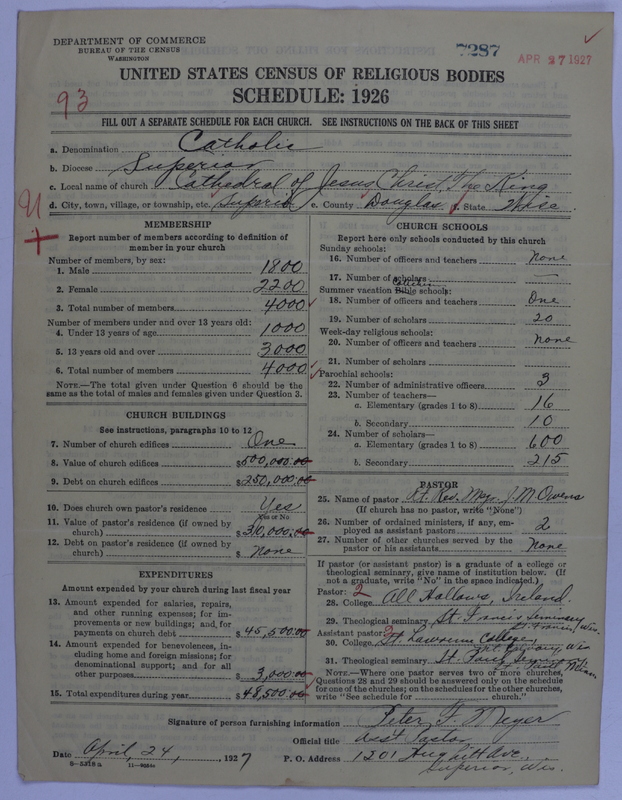 DEPARTMENT OF COMMERCE
BUREAU OF THE CENSUS
WASHINGTON
7287
APR 27 1927
UNITED STATES CENSUS OF RELIGIOUS BODIES
SCHEDULE: 1926
93
FILL OUT A SEPARATE SCHEDULE FOR EACH CHURCH. SEE INSTRUCTIONS ON THE BACK OF THIS SHEET
a. Denomination Catholic
b. Diocese Superior
c. Local name of church Cathedral of Jesus Christ, The King
d. City, town, village, or township, etc. Superior e. County Douglas f. State Wisc.
MEMBERSHIP
Report number of members according to definition of
member in your church
Number of members, by sex:
1. Male 1800
2. Female 2200
3. Total number of members 4000
Number of members under and over 13 years old:
4. Under 13 years of age 1000
5. 13 years old and over 3000
6. Total number of members 4000
NOTE.—The total given under Question 6 should be the
same as the total of males and females given under Question 3.
CHURCH BUILDINGS
See instructions, paragraphs 10 to 12
7. Number of church edifices One
8. Value of church edifices $500,000.00
9. Debt on church edifices $250,000.00
10. Does church own pastor's residence Yes
Yes or No
11. Value of pastor's residence (if owned by
church) $30,000.00
12. Debt on pastor's residence (if owned by
church) $ None
EXPENDITURES
Amount expended by your church during last fiscal year
13. Amount expended for salaries, repairs,
and other running expenses; for im-
provements or new buildings; and, for
payments on church debt $45,500.00
14. Amount expended for benevolences, in-
cluding home and foreign missions; for
denominational support; and for all
other purposes 3,000.00
15. Total expenditures during year $48,500.00
CHURCH SCHOOLS
Report here only schools conducted by this church
Sunday schools:
16. Number of officers and teachers None
17. Number of scholars —
Summer vacation Bible schools:
18. Number of officers and teachers One
19. Number of scholars 20
Week-day religious schools:
20. Number of officers and teachers None
21. Number of scholars
Parochial schools:
22. Number of administrative officers 3
23. Number of teachers—
a. Elementary (grades 1 to 8) 16
b. Secondary 10
24. Number of scholars—
a. Elementary (grades 1 to 8) 600
b. Secondary 215
PASTOR
25. Name of pastor Rt. Rev. Msgr. J. M. Owens
(If church has no pastor, write "None")
26. Number of ordained ministers, if any, em-
ployed as assistant pastors 2
27. Number of other churches served by the
pastor or his assistants None
If pastor (or assistant pastor) is a graduate of a college or
theological seminary, give name of institution below. (If
not a graduate, write "No" in the space indicated.)
Pastor: 2
28. College All Hallows, Ireland.
29. Theological seminary St. Francis Seminary
St. Francis, Wis.
Assistant pastor: 2
30. College St. Lawrence College,
Mt. Calvary, Wis
31. Theological seminary St. Paul Sem
NOTE.—Where one pastor serves two or more churches,
Questions 28 and 29 should be answered only on the schedule
for one of the churches; on the schedules for the other churches,
write "See schedule for church."
Signature of person furnishing information Peter F. Meyer
Official title Asst Pastor
Date April, 24, 1927
P. O. Address 1201 Hughitt Ave.,
Superior, Wis.